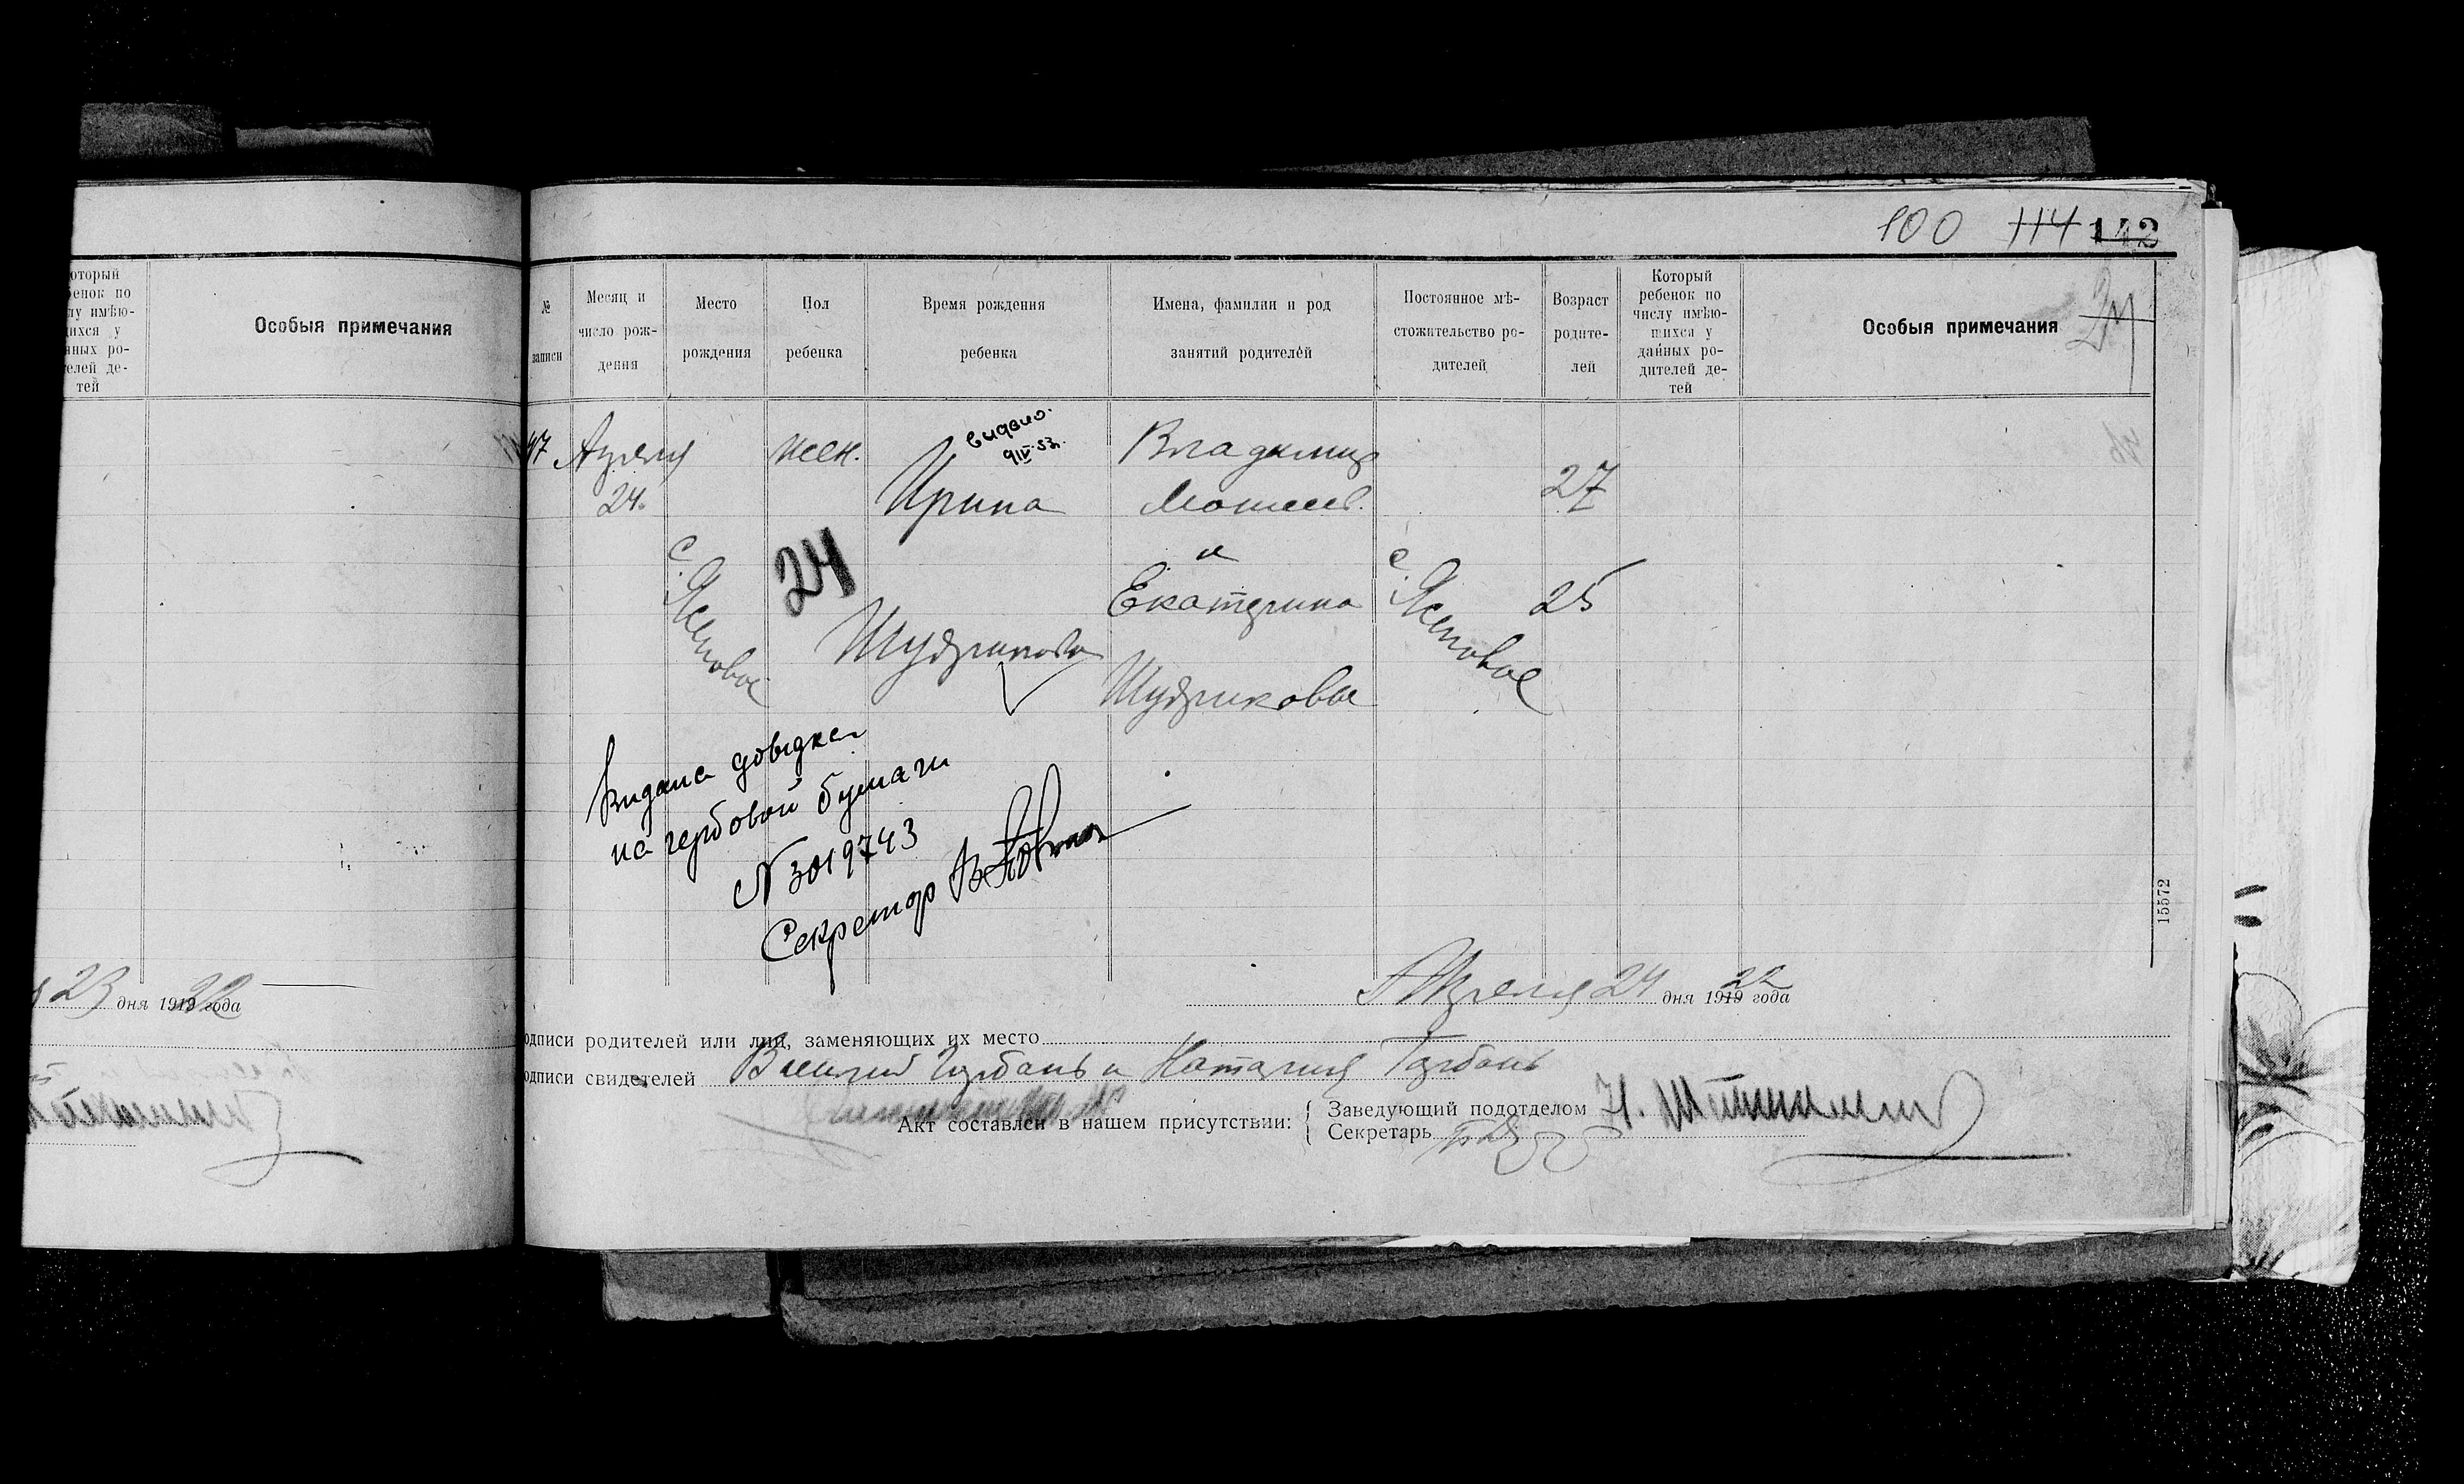 100 114 142
который
ребенок по
числу имѣю-
щихся у
данных ро-
дителей де-
тей
Особыя примечания
23 дня 1919 года
№
записи
Месяц и
число рож-
дения
Место
рождения
Пол
ребенка
Время рождения
ребенка
Имена, фамилии и род
занятий родителей
Постоянное мѣ-
стожительство ро-
дителей
Возраст
родите-
лей
Который
ребенок по
числу имѣю-
щихся у
данных ро-
дителей де-
тей
Особыя примечания
47
Апреля
24.
с. Ясеновое
жен.
24
видано.
9 IV 53
Ирина
Владимир
и
Екатерина
с. Ясеновое
27
25
Видана довідка
на гербовой бумаги
N 3019743
Секретар
15572
Апреля 24 дня 1919 22 года
одписи родителей или лиц, заменяющих их место
одписи свидетелей Василий Гузбань и Наталия
Акт составлен в нашем присутствии:
Заведующий подотделом
Секретарь